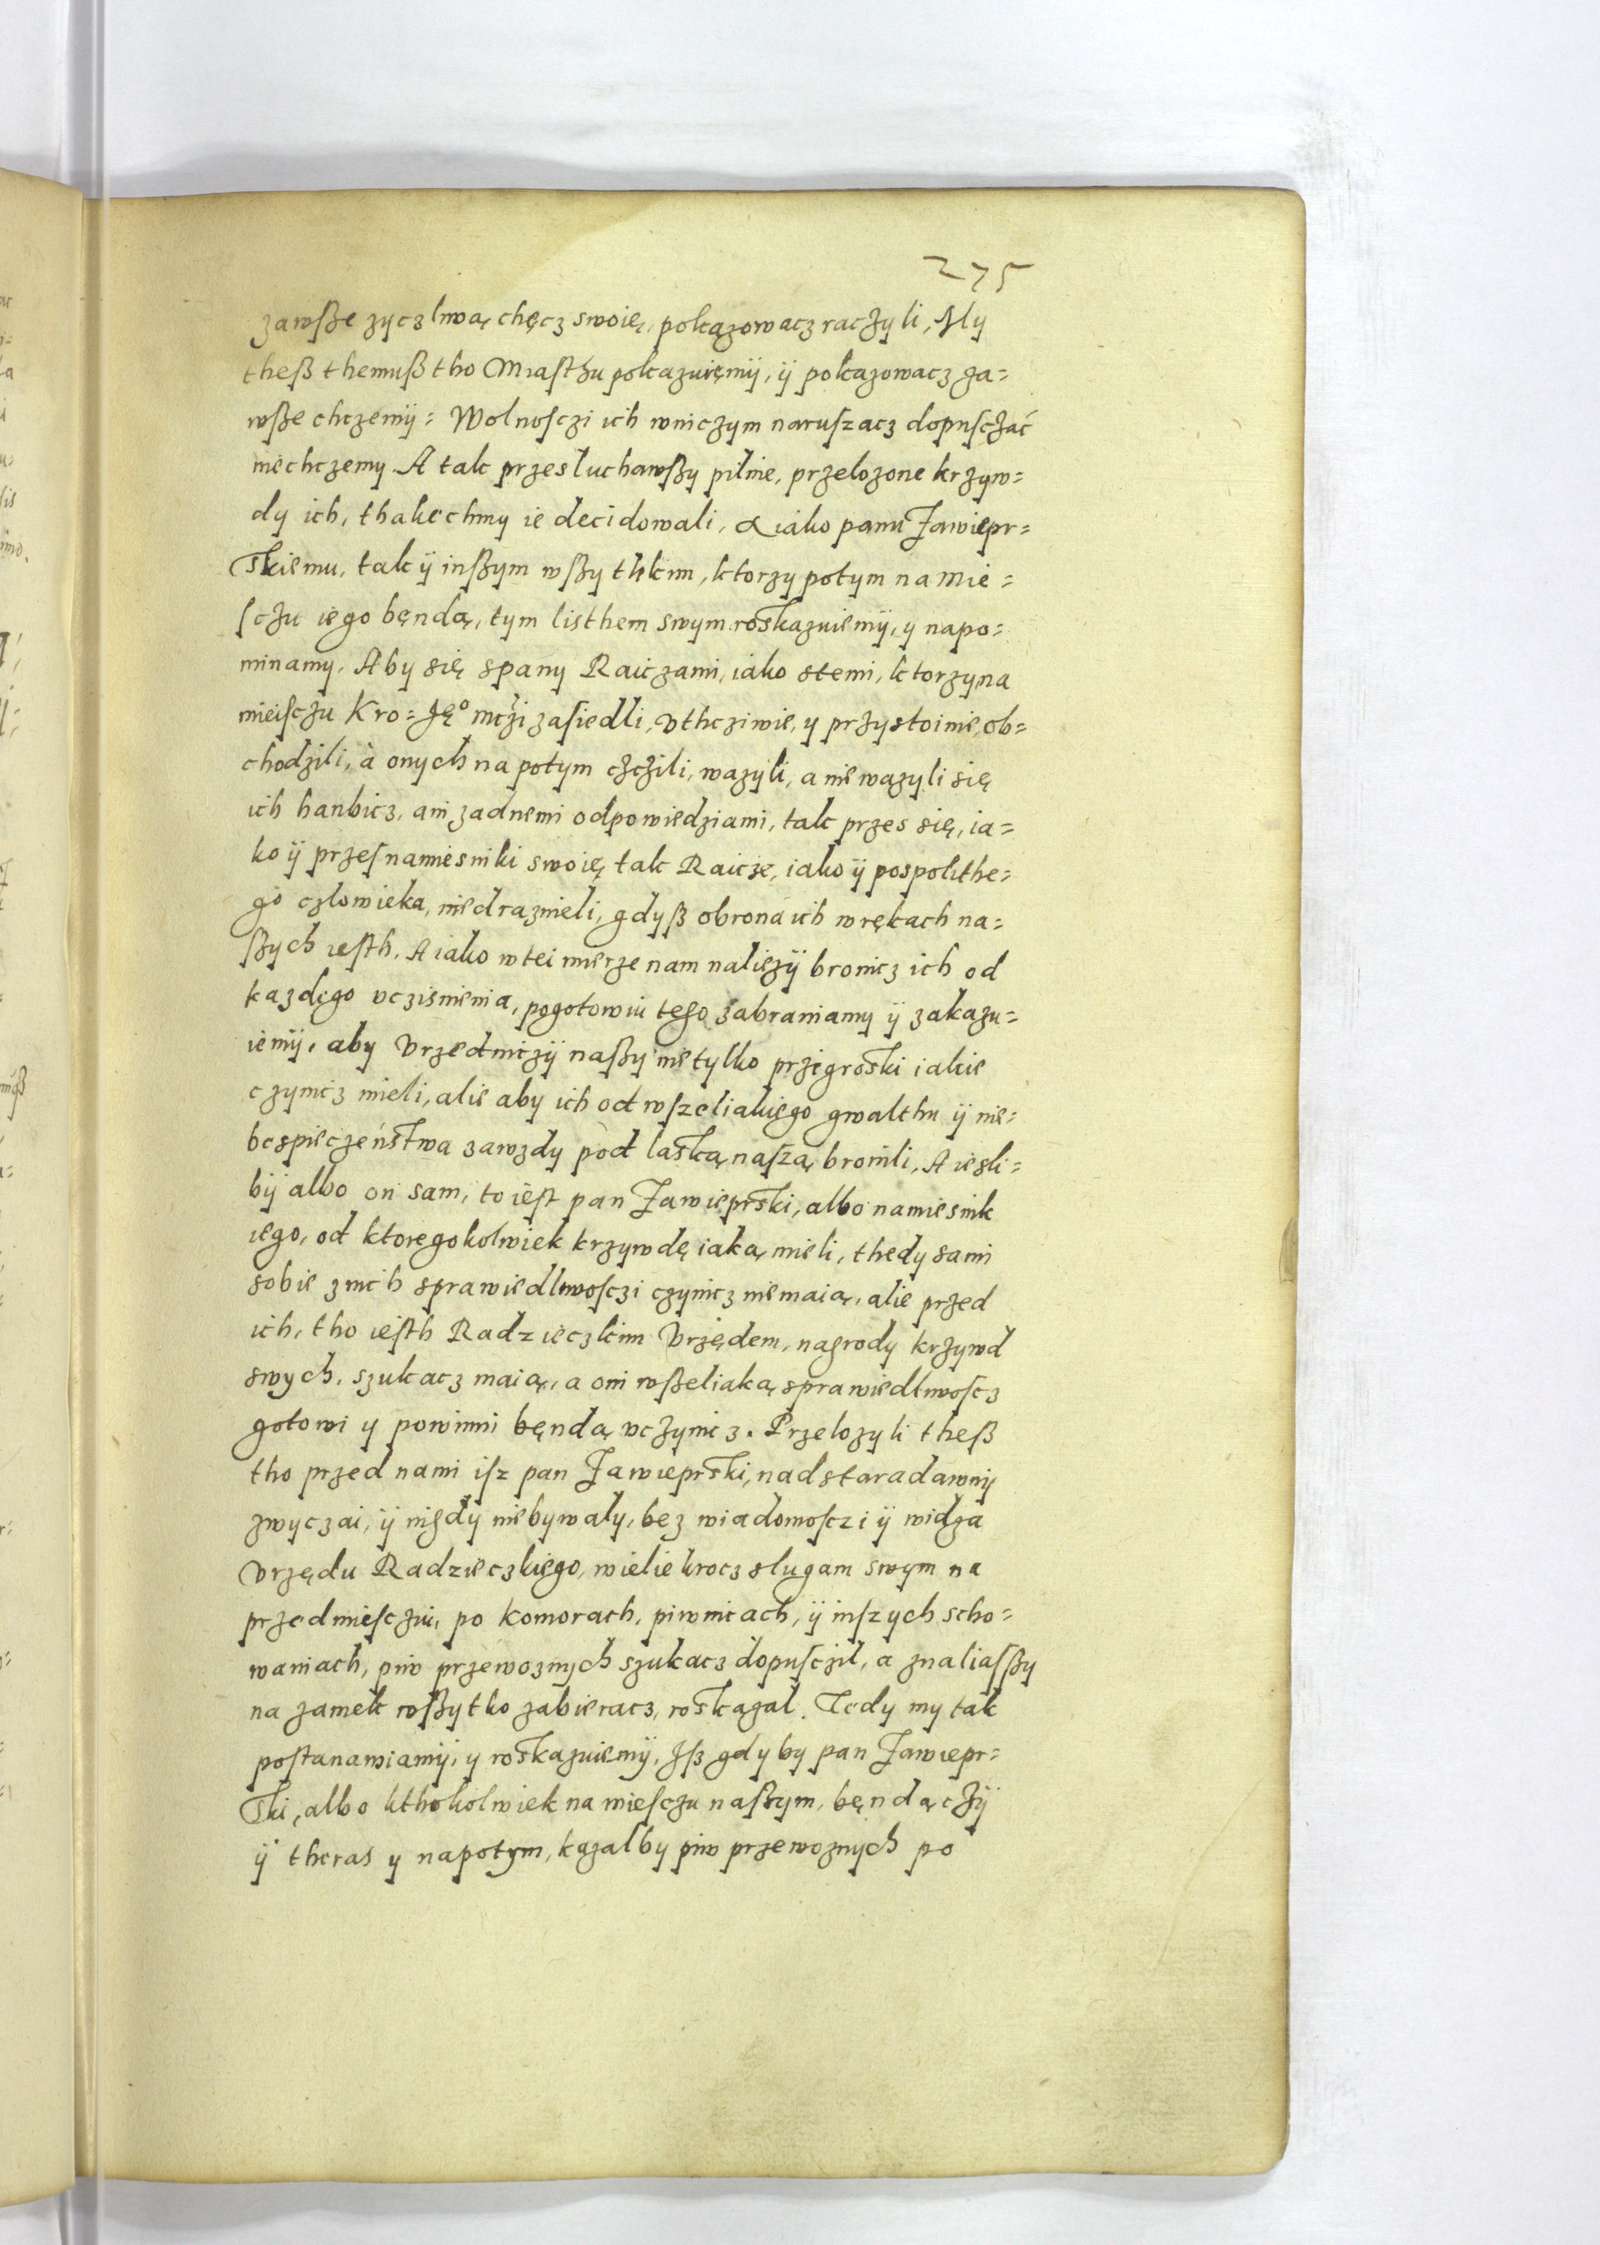 275
zawſze zyczliwą chęcz swoię, pokązowacz raczyli, My
theß themuß tho Miaſthu pokazuięmÿ, ÿ pokazowacz za=
wſze chczemÿ: Wolnoſczi ich wniczym naruſzacz dopuſczać
niechczemy A tak przesluchawſzy pilnie, przelozone krzyw=
dy ich, thakechmy ie decidowali, A iako panu Zawiepr=
skiemu, tak ÿ inſzym wſzythkim, ktorzy potym na mie=
ſczu iego bęndą, tym listhem swym roskazuiemÿ, y napo=
minamy, Aby się spany Raiczami, iako stemi, ktorzy na
mieiſczu Kro= Jęº mczi zaſiedli, vthcziwie, y przystoinie, ob=
chodzili, à onych na potym czczili, wazyli, a nie wazyli się
ich hanbicz, ani zadnemi odpowiedziami, tak przes się, ia=
ko ÿ przeſ namiesniki swoię tak Raicze, iako ÿ pospolithe=
go czlowieka, niedraznieli, gdyß obrona ich w rękach na=
ſzych ieſth, A iako w tei mierze nam nalieżÿ bronicz ich od
kazdego vczisnienia, pogotowiu tego zabraniamy ÿ zakazu=
iemÿ, aby Vrzedniczÿ naſzy nie tylko przegroski iakie
czynicz mieli, alie aby ich od wſzeliakiego gwalthu ÿ nie=
bespieczeństwa zawzdy pod laską naſzą bronili, A iesli=
bÿ albo on sam, to ieſt pan Zawieprski, albo namiesnik
iego, od ktoregokolwiek krzywdę iaką mieli, thedy sami
sobie znich sprawiedliwoſczi czynicz niemaią, alie przed
ich, tho ieſth Radzieczkim Vrzędem, nagrody krzywd
swych, szukacz maią, a oni wſzeliaką sprawiedliwoſcz
gotowi y powinni bęndą vczynicz. Przelozyli theß
tho przed nami iſz pan Zawieprski, nad staradawnÿ
zwyczai, ÿ nigdy niebywaly, bez wiadomoſczi ÿ widza
Vrzędu Radzieczkiego, wielie krocz slugam swym na
przedmieſcziu, po komorach, piwnicach, ÿ inſzych scho=
waniach, piw przewoznych szukacz dopuſczil, a znaliaſſzy
na zamek wſzytko zabieracz, roskązal. Tedy my tak
poſtanawiamÿ, y roskazuiemÿ, Iſz gdy by pan Zawiepr=
ski, albo kthokolwiek na mieſczu naſzym, bęndączÿ
ÿ theras y napotym, kązalby piw przewoznych po